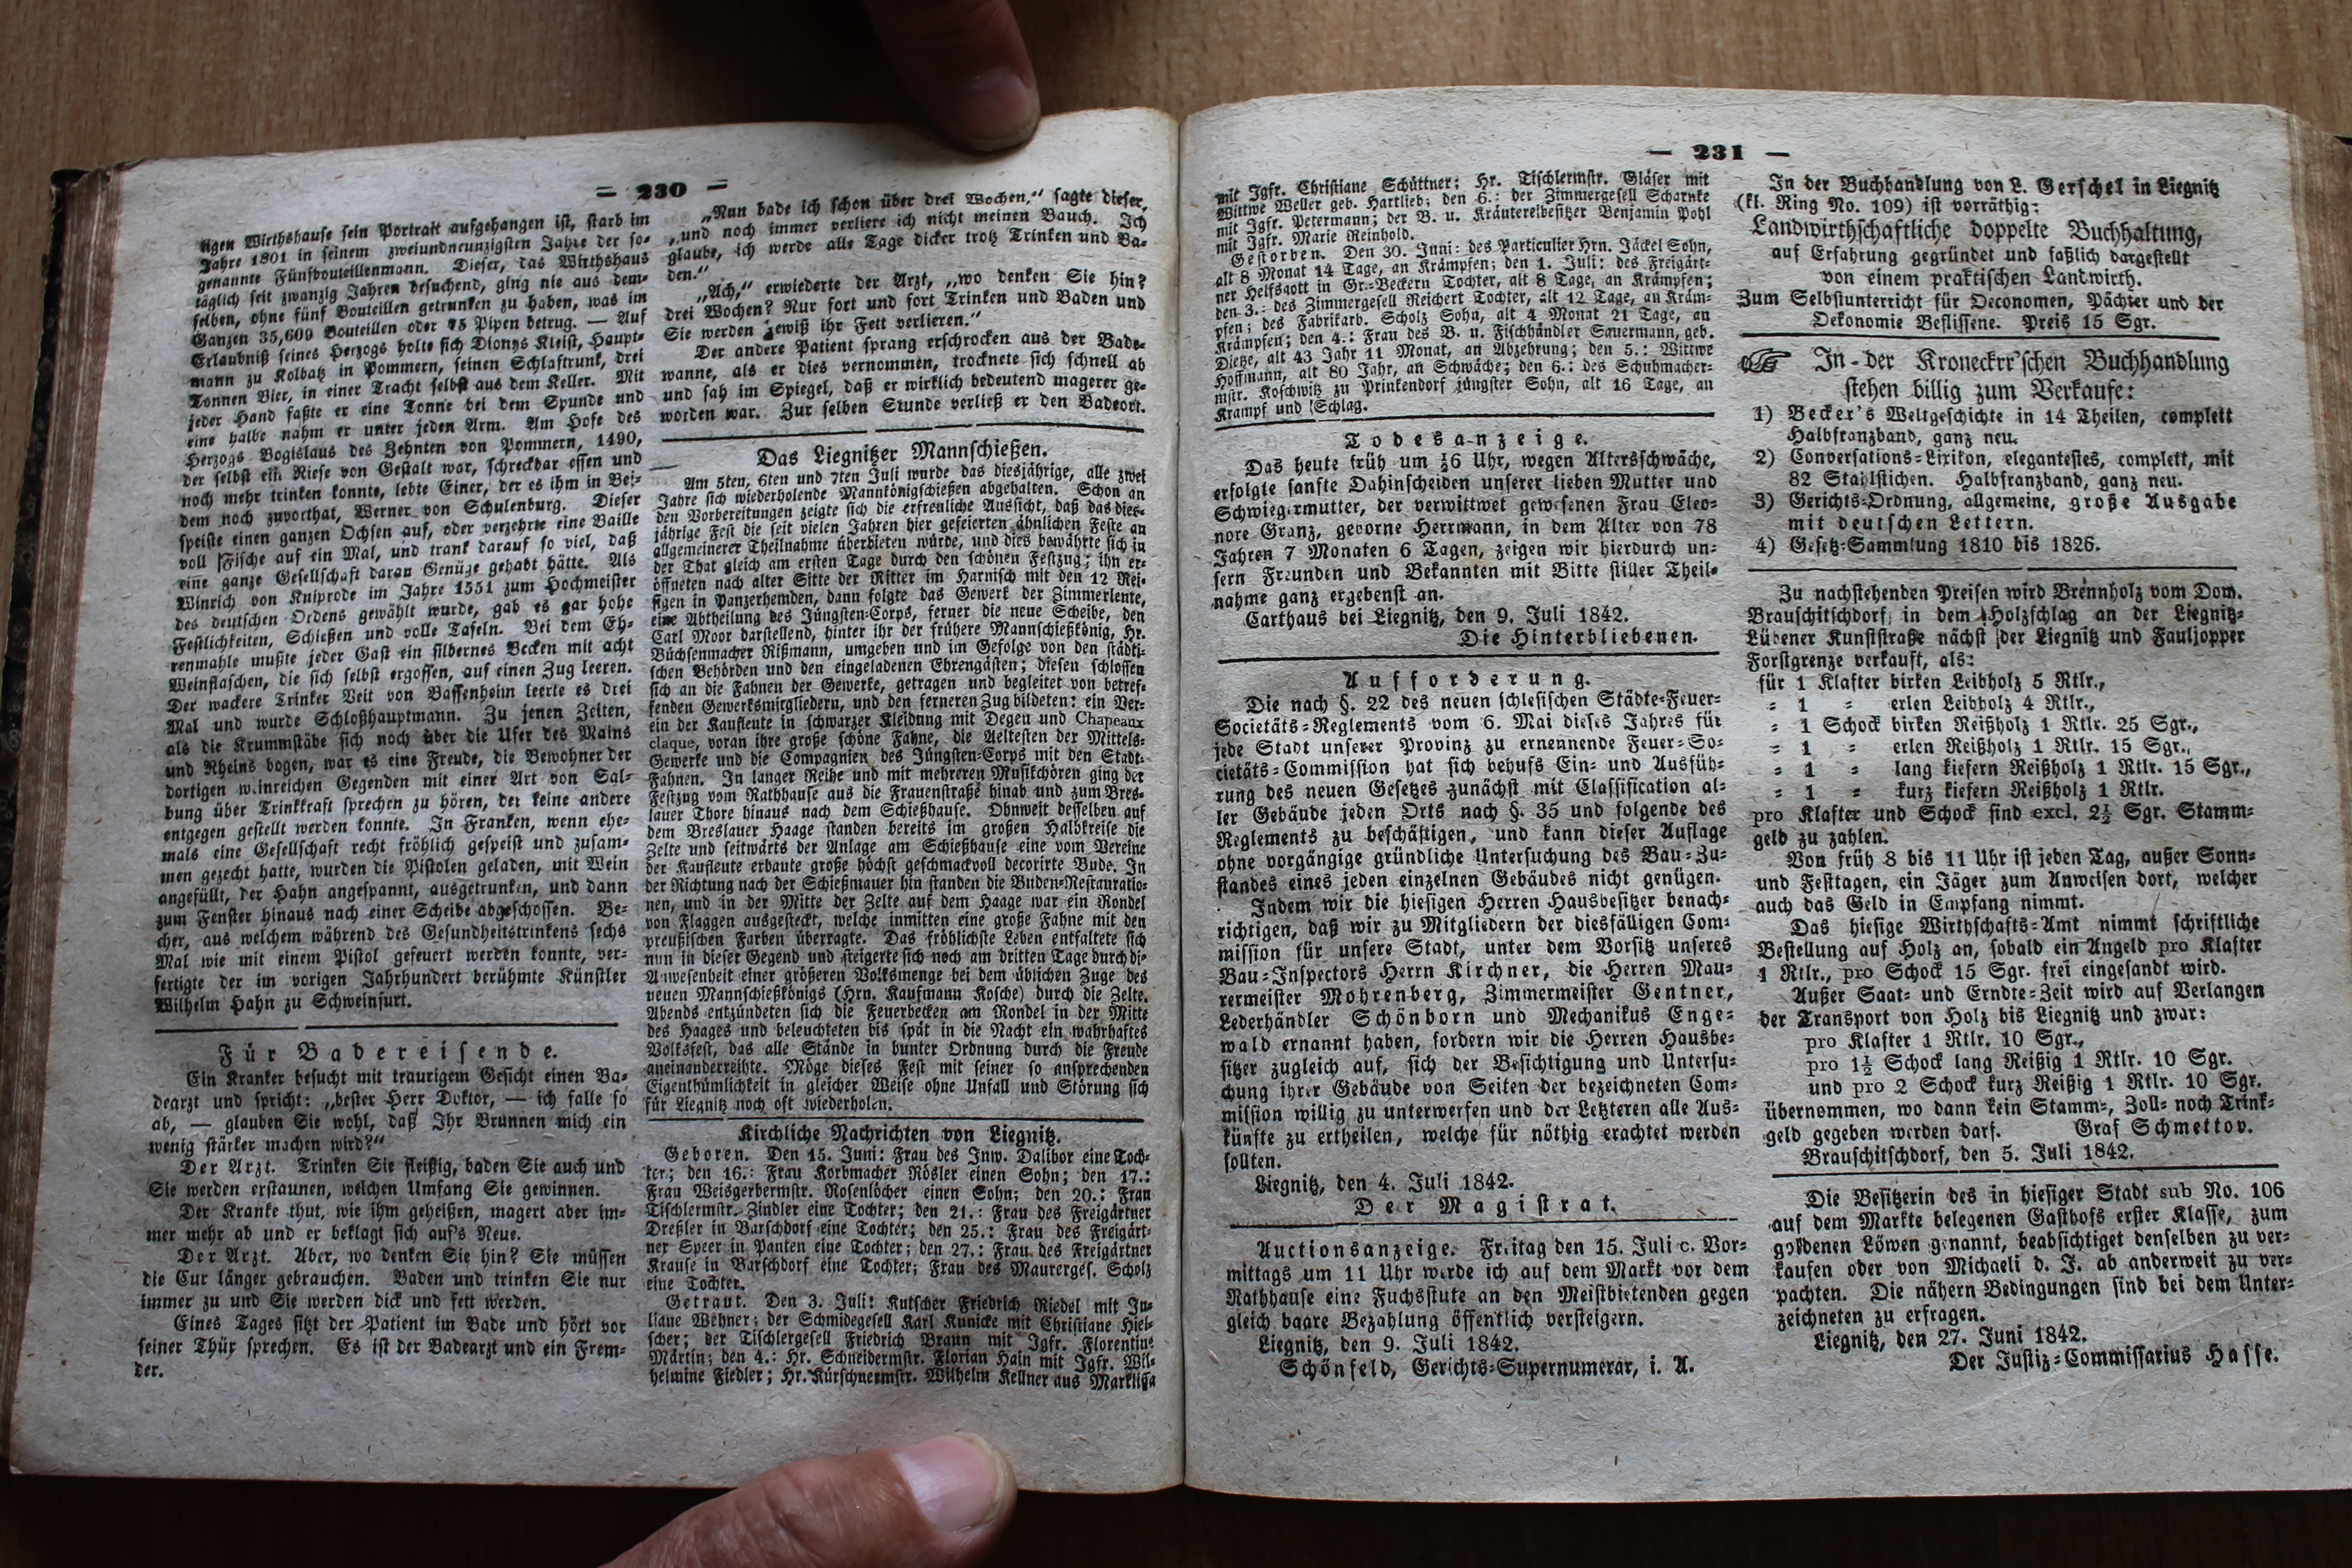 — 230 —
tigen Wirthshause sein Portrait aufgehangen ist, starb im
Jahre 1801 in seinem zweiundneunzigsten Jahre der so-
genannte Fünfbouteillenmann. Dieser, das Wirthshaus
täglich seit zwanzig Jahren besuchend, ging nie aus dem-
selben, ohne fünf Bouteillen getrunken zu haben, was im
Ganzen 35,609 Bouteillen oder 75 Pipen betrug. — Auf
Erlaubniß seines Herzogs holte sich Dionys Kleist, Haupt-
mann zu Kolbatz in Pommern, seinen Schlaftrunk, drei
Tonnen Bier, in einer Tracht selbst aus dem Keller. Mit
jeder Hand faßte er eine Tonne bei dem Spunde und
eine halbe nahm er unter jeden Arm. Am Hofe des
Herzogs Bogislaus des Zehnten von Pommern, 1490,
der selbst ein Riese von Gestalt war, schreckbar essen und
noch mehr trinken konnte, lebte Einer, der es ihm in Bei-
dem noch zuvorthat, Werner von Schulenburg. Dieser
speiste einen ganzen Ochsen auf, oder verzehrte eine Baille
voll Fische auf ein Mal, und trank darauf so viel, daß
eine ganze Gesellschaft daran Genüge gehabt hätte. Als
Winrich von Kniprode im Jahre 1551 zum Hochmeister
des deutschen Ordens gewählt wurde, gab es gar hohe
Festlichkeiten, Schießen und volle Tafeln. Bei dem Eh-
renmahle mußte jeder Gast ein silbernes Becken mit acht
Weinflaschen, die sich selbst ergossen, auf einen Zug leeren.
Der wackere Trinker Veit von Bassenheim leerte es drei
Mal und wurde Schloßhauptmann. Zu jenen Zeiten,
als die Krummstäbe sich noch über die Ufer des Mains
und Rheins bogen, war es eine Freude, die Bewohner der
dortigen weinreichen Gegenden mit einer Art von Sal-
bung über Trinkkraft sprechen zu hören, der keine andere
entgegen gestellt werden konnte. In Franken, wenn ehe-
mals eine Gesellschaft recht fröhlich gespeist und zusam-
men gezecht hatte, wurden die Pistolen geladen, mit Wein
angefüllt, der Hahn angespannt, ausgetrunken, und dann
zum Fenster hinaus nach einer Scheibe abgeschossen. Be-
cher, aus welchem während des Gesundheitstrinkens sechs
Mal wie mit einem Pistol gefeuert werden konnte, ver-
fertigte der im vorigen Jahrhundert berühmte Künstler
Wilhelm Hahn zu Schweinfurt.
Für Badereisende.
Ein Kranker besucht mit traurigem Gesicht einen Ba-
dearzt und spricht: „bester Herr Doktor, — ich falle so
ab, — glauben Sie wohl, daß Ihr Brunnen mich ein
wenig stärker machen wird?“
Der Arzt. Trinken Sie fleißig, baden Sie auch und
Sie werden erstaunen, welchen Umfang Sie gewinnen.
Der Kranke thut, wie ihm geheißen, magert aber im-
mer mehr ab und er beklagt sich auf's Neue.
Der Arzt. Aber, wo denken Sie hin? Sie müssen
die Cur länger gebrauchen. Baden und trinken Sie nur
immer zu und Sie werden dick und fett werden.
Eines Tages sitzt der Patient im Bade und hört vor
seiner Thür sprechen. Es ist der Badearzt und ein Frem-
der.
„Nun bade ich schon über drei Wochen,“ sagte dieser,
„und noch immer verliere ich nicht meinen Bauch. Ich
glaube, ich werde alle Tage dicker trotz Trinken und Ba-
den.“
„Ach,“ erwiederte der Arzt, „wo denken Sie hin?
drei Wochen? Nur fort und fort Trinken und Baden und
Sie werden gewiß ihr Fett verlieren.“
Der andere Patient sprang erschrocken aus der Bade-
wanne, als er dies vernommen, trocknete sich schnell ab
und sah im Spiegel, daß er wirklich bedeutend magerer ge-
worden war. Zur selben Stunde verließ er den Badeort.
Das Liegnitzer Mannschießen.
Am 5ten, 6ten und 7ten Juli wurde das diesjährige, alle zwei
Jahre sich wiederholende Mannkönigschießen abgehalten. Schon an
den Vorbereitungen zeigte sich die erfreuliche Aussicht, daß das dies-
jährige Fest die seit vielen Jahren hier gefeierten ähnlichen Feste an
allgemeinerer Theilnahme überbieten würde, und dies bewährte sich in
der That gleich am ersten Tage durch den schönen Festzug; ihn er-
öffneten nach alter Sitte der Ritter im Harnisch mit den 12 Rei-
sigen in Panzerhemden, dann folgte das Gewerk der Zimmerleute,
eine Abtheilung des Jüngsten-Corps, ferner die neue Scheibe, den
Carl Moor darstellend, hinter ihr der frühere Mannschießkönig, Hr.
Büchsenmacher Rißmann, umgeben und im Gefolge von den städti-
schen Behörden und den eingeladenen Ehrengästen; diesen schlossen
sich an die Fahnen der Gewerke, getragen und begleitet von betref-
fenden Gewerksmitgliedern, und den ferneren Zug bildeten: ein Ver-
ein der Kaufleute in schwarzer Kleidung mit Degen und Chapeaux
claque, voran ihre große schöne Fahne, die Aeltesten der Mittels-
Gewerke und die Compagnien des Jüngsten-Corps mit den Stadt-
Fahnen. In langer Reihe und mit mehreren Musikchören ging der
Festzug vom Rathhause aus die Frauenstraße hinab und zum Bres-
lauer Thore hinaus nach dem Schießhause. Ohnweit desselben auf
dem Breslauer Haage standen bereits im großen Halbkreise die
Zelte und seitwärts der Anlage am Schießhause eine vom Vereine
der Kaufleute erbaute große höchst geschmackvoll decorirte Bude. In
der Richtung nach der Schießmauer hin standen die Buden-Restauratio-
nen, und in der Mitte der Zelte auf dem Haage war ein Rondel
von Flaggen ausgesteckt, welche inmitten eine große Fahne mit den
preußischen Farben überragte. Das fröhlichste Leben entfaltete sich
nun in dieser Gegend und steigerte sich noch am dritten Tage durch die
Anwesenheit einer größeren Volksmenge bei dem üblichen Zuge des
neuen Mannschießkönigs (Hrn. Kaufmann Kosche) durch die Zelte.
Abends entzündeten sich die Feuerbecken am Rondel in der Mitte
des Haages und beleuchteten bis spät in die Nacht ein wahrhaftes
Volksfest, das alle Stände in bunter Ordnung durch die Freude
aneinanderreihte. Möge dieses Fest mit seiner so ansprechenden
Eigenthümlichkeit in gleicher Weise ohne Unfall und Störung sich
für Liegnitz noch oft wiederholen.
Kirchliche Nachrichten von Liegnitz.
Geboren. Den 15. Juni: Frau des Inw. Dalibor eine Toch-
ter; den 16.: Frau Korbmacher Rösler einen Sohn; den 17.:
Frau Weisgerbermstr. Rosenlöcher einen Sohn; den 20.: Frau
Tischlermstr. Zindler eine Tochter; den 21.: Frau des Freigärtner
Dreßler in Barschdorf eine Tochter; den 25.: Frau des Freigärt-
ner Speer in Panten eine Tochter; den 27.: Frau des Freigärtner
Krause in Barschdorf eine Tochter; Frau des Maurerges. Scholz
eine Tochter.
Getraut. Den 3. Juli: Kutscher Friedrich Riedel mit Ju-
liane Wehner; der Schmidegesell Karl Kunicke mit Christiane Hiel-
scher; der Tischlergesell Friedrich Braun mit Jgfr. Florentine
Martin; den 4.: Hr. Schneidermstr. Florian Hain mit Jgfr. Wil-
helmine Fiedler; Hr. Kürschnermstr. Wilhelm Kellner aus Marklissa
— 231 —
mit Jgfr. Christiane Schüttner; Hr. Tischlermstr. Gläser mit
Wittwe Weller geb. Hartlieb; den 6.: der Zimmergesell Scharnke
mit Jgfr. Petermann; der B. u. Kräutereibesitzer Benjamin Pohl
mit Jgfr. Marie Reinhold.
Gestorben. Den 30. Juni: des Particulier Hrn. Jäckel Sohn,
alt 8 Monat 14 Tage, an Krämpfen; den 1. Juli: des Freigärt-
ner Helfsgott in Gr.-Beckern Tochter, alt 8 Tage, an Krämpfen;
den 3.: des Zimmergesell Reichert Tochter, alt 12 Tage, an Kräm-
pfen; des Fabrikarb. Scholz Sohn, alt 4 Monat 21 Tage, an
Krämpfen; den 4.: Frau des B. u. Fischhändler Sauermann, geb.
Dietze, alt 43 Jahr 11 Monat, an Abzehrung; den 5.: Wittwe
Hoffmann, alt 80 Jahr, an Schwäche; den 6.: des Schuhmacher-
mstr. Koschwitz zu Prinkendorf jüngster Sohn, alt 16 Tage, an
Krampf und Schlag.
Todesanzeige.
Das heute früh um ½6 Uhr, wegen Altersschwäche,
erfolgte sanfte Dahinscheiden unserer lieben Mutter und
Schwiegermutter, der verwittwet gewesenen Frau Eleo-
nore Granz, geborne Herrmann, in dem Alter von 78
Jahren 7 Monaten 6 Tagen, zeigen wir hierdurch un-
sern Freunden und Bekannten mit Bitte stiller Theil-
nahme ganz ergebenst an.
Carthaus bei Liegnitz, den 9. Juli 1842.
Die Hinterbliebenen.
Aufforderung.
Die nach §. 22 des neuen schlesischen Städte-Feuer-
Societäts-Reglements vom 6. Mai dieses Jahres für
jede Stadt unserer Provinz zu ernennende Feuer-So-
cietäts-Commission hat sich behufs Ein- und Ausfüh-
rung des neuen Gesetzes zunächst mit Classification al-
ler Gebäude jeden Orts nach §. 35 und folgende des
Reglements zu beschäftigen, und kann dieser Auflage
ohne vorgängige gründliche Untersuchung des Bau-Zu-
standes eines jeden einzelnen Gebäudes nicht genügen.
Indem wir die hiesigen Herren Hausbesitzer benach-
richtigen, daß wir zu Mitgliedern der diesfälligen Com-
mission für unsere Stadt, unter dem Vorsitz unseres
Bau-Inspectors Herrn Kirchner, die Herren Mau-
rermeister Mohrenberg, Zimmermeister Gentner,
Lederhändler Schönborn und Mechanikus Enge-
wald ernannt haben, fordern wir die Herren Hausbe-
sitzer zugleich auf, sich der Besichtigung und Untersu-
chung ihrer Gebäude von Seiten der bezeichneten Com-
mission willig zu unterwerfen und der Letzteren alle Aus-
künfte zu ertheilen, welche für nöthig erachtet werden
sollten.
Liegnitz, den 4. Juli 1842.
Der Magistrat.
Auctionsanzeige. Freitag den 15. Juli c. Vor-
mittags um 11 Uhr werde ich auf dem Markt vor dem
Rathhause eine Fuchsstute an den Meistbietenden gegen
gleich baare Bezahlung öffentlich versteigern.
Liegnitz, den 9. Juli 1842.
Schönfeld, Gerichts-Supernumerar, i. A.
In der Buchhandlung von L. Gerschel in Liegnitz
(kl. Ring No. 109) ist vorräthig:
Landwirthschaftliche doppelte Buchhaltung,
auf Erfahrung gegründet und faßlich dargestellt
von einem praktischen Landwirth.
Zum Selbstunterricht für Oeconomen, Pächter und der
Oekonomie Beflissene. Preis 15 Sgr.
☞ In der Kroneckrr'schen Buchhandlung
stehen billig zum Verkaufe:
1) Becker's Weltgeschichte in 14 Theilen, complett
Halbfranzband, ganz neu.
2) Conversations-Lexikon, elegantestes, complett, mit
82 Stahlstichen. Halbfranzband, ganz neu.
3) Gerichts-Ordnung, allgemeine, große Ausgabe
mit deutschen Lettern.
4) Gesetz-Sammlung 1810 bis 1826.
Zu nachstehenden Preisen wird Brennholz vom Dom.
Brauschitschdorf, in dem Holzschlag an der Liegnitz-
Lübener Kunststraße nächst der Liegnitz und Fauljopper
Forstgrenze verkauft, als:
für 1 Klafter birken Leibholz 5 Rtlr.,
= 1 = erlen Leibholz 4 Rtlr.,
= 1 Schock birken Reißholz 1 Rtlr. 25 Sgr.,
= 1 = erlen Reißholz 1 Rtlr. 15 Sgr.,
= 1 = lang kiefern Reißholz 1 Rtlr. 15 Sgr.,
= 1 = kurz kiefern Reißholz 1 Rtlr.
pro Klafter und Schock sind excl. 2½ Sgr. Stamm-
geld zu zahlen.
Von früh 8 bis 11 Uhr ist jeden Tag, außer Sonn-
und Festtagen, ein Jäger zum Anweisen dort, welcher
auch das Geld in Empfang nimmt.
Das hiesige Wirthschafts-Amt nimmt schriftliche
Bestellung auf Holz an, sobald ein Angeld pro Klafter
1 Rtlr., pro Schock 15 Sgr. frei eingesandt wird.
Außer Saat- und Erndte-Zeit wird auf Verlangen
der Transport von Holz bis Liegnitz und zwar:
pro Klafter 1 Rtlr. 10 Sgr.,
pro 1½ Schock lang Reißig 1 Rtlr. 10 Sgr.
und pro 2 Schock kurz Reißig 1 Rtlr. 10 Sgr.
übernommen, wo dann kein Stamm-, Zoll- noch Trink-
geld gegeben werden darf. Graf Schmettov.
Brauschitschdorf, den 5. Juli 1842.
Die Besitzerin des in hiesiger Stadt sub No. 106
auf dem Markte belegenen Gasthofs erster Klasse, zum
goldenen Löwen genannt, beabsichtiget denselben zu ver-
kaufen oder von Michaeli d. J. ab anderweit zu ver-
pachten. Die nähern Bedingungen sind bei dem Unter-
zeichneten zu erfragen.
Liegnitz, den 27. Juni 1842.
Der Justiz-Commissarius Hasse.